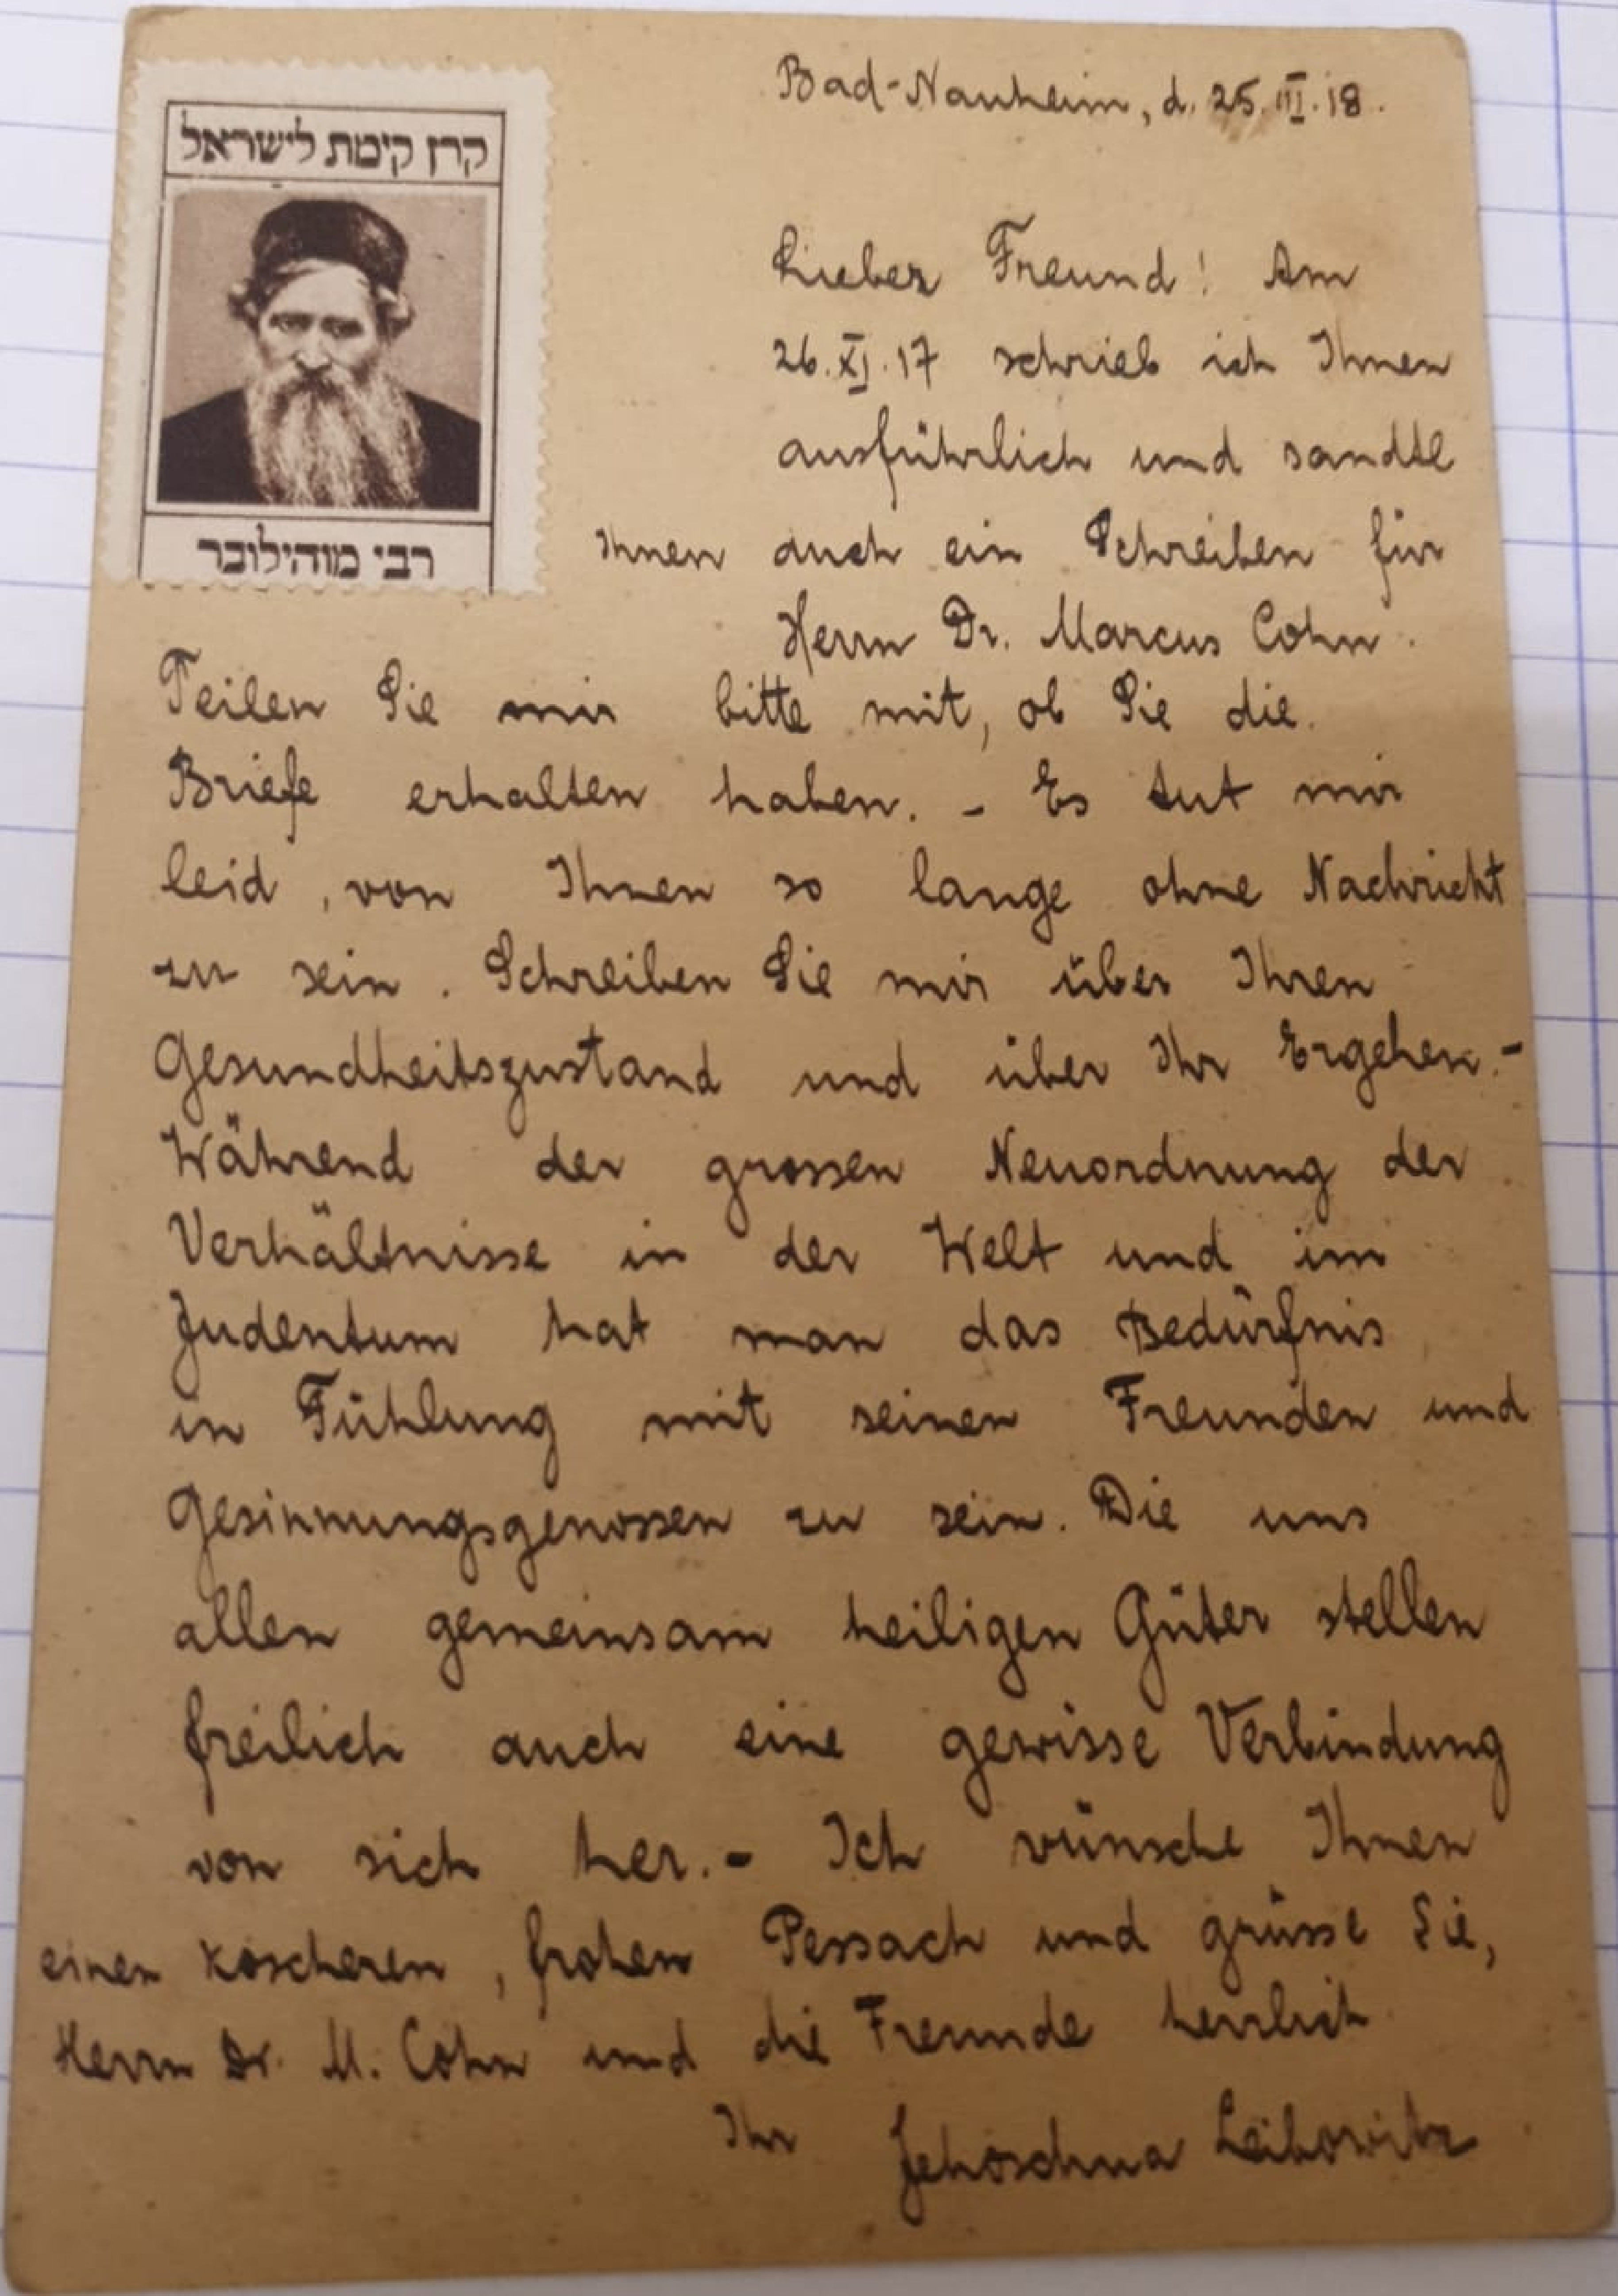 Bad-Nauheim, d. 25.III.18.
קרן קימת לישראל
רבי מוהילובר
Lieber Freund! Am
26.XI.17 schrieb ich Ihnen
ausführlich und sandte
Ihnen auch ein Schreiben für
Herrn Dr. Marcus Cohn.
Teilen Sie mir bitte mit, ob Sie die
Briefe erhalten haben. - Es tut mir
leid, von Ihnen so lange ohne Nachricht
zu sein. Schreiben Sie mir über Ihren
Gesundheitszustand und über Ihr Ergehen. -
Während der grossen Neuordnung der
Verhältnisse in der Welt und im
Judentum hat man das Bedürfnis
in Fühlung mit seinen Freunden und
Gesinnungsgenossen zu sein. Die uns
allen gemeinsam heiligen Güter stellen
freilich auch eine gewisse Verbindung
von sich her. - Ich wünsche Ihnen
einen koscheren, frohen Pessach und grüsse Sie,
Herrn Dr. M. Cohn und die Freunde herzlich
Ihr Jehoschua Leibowitz